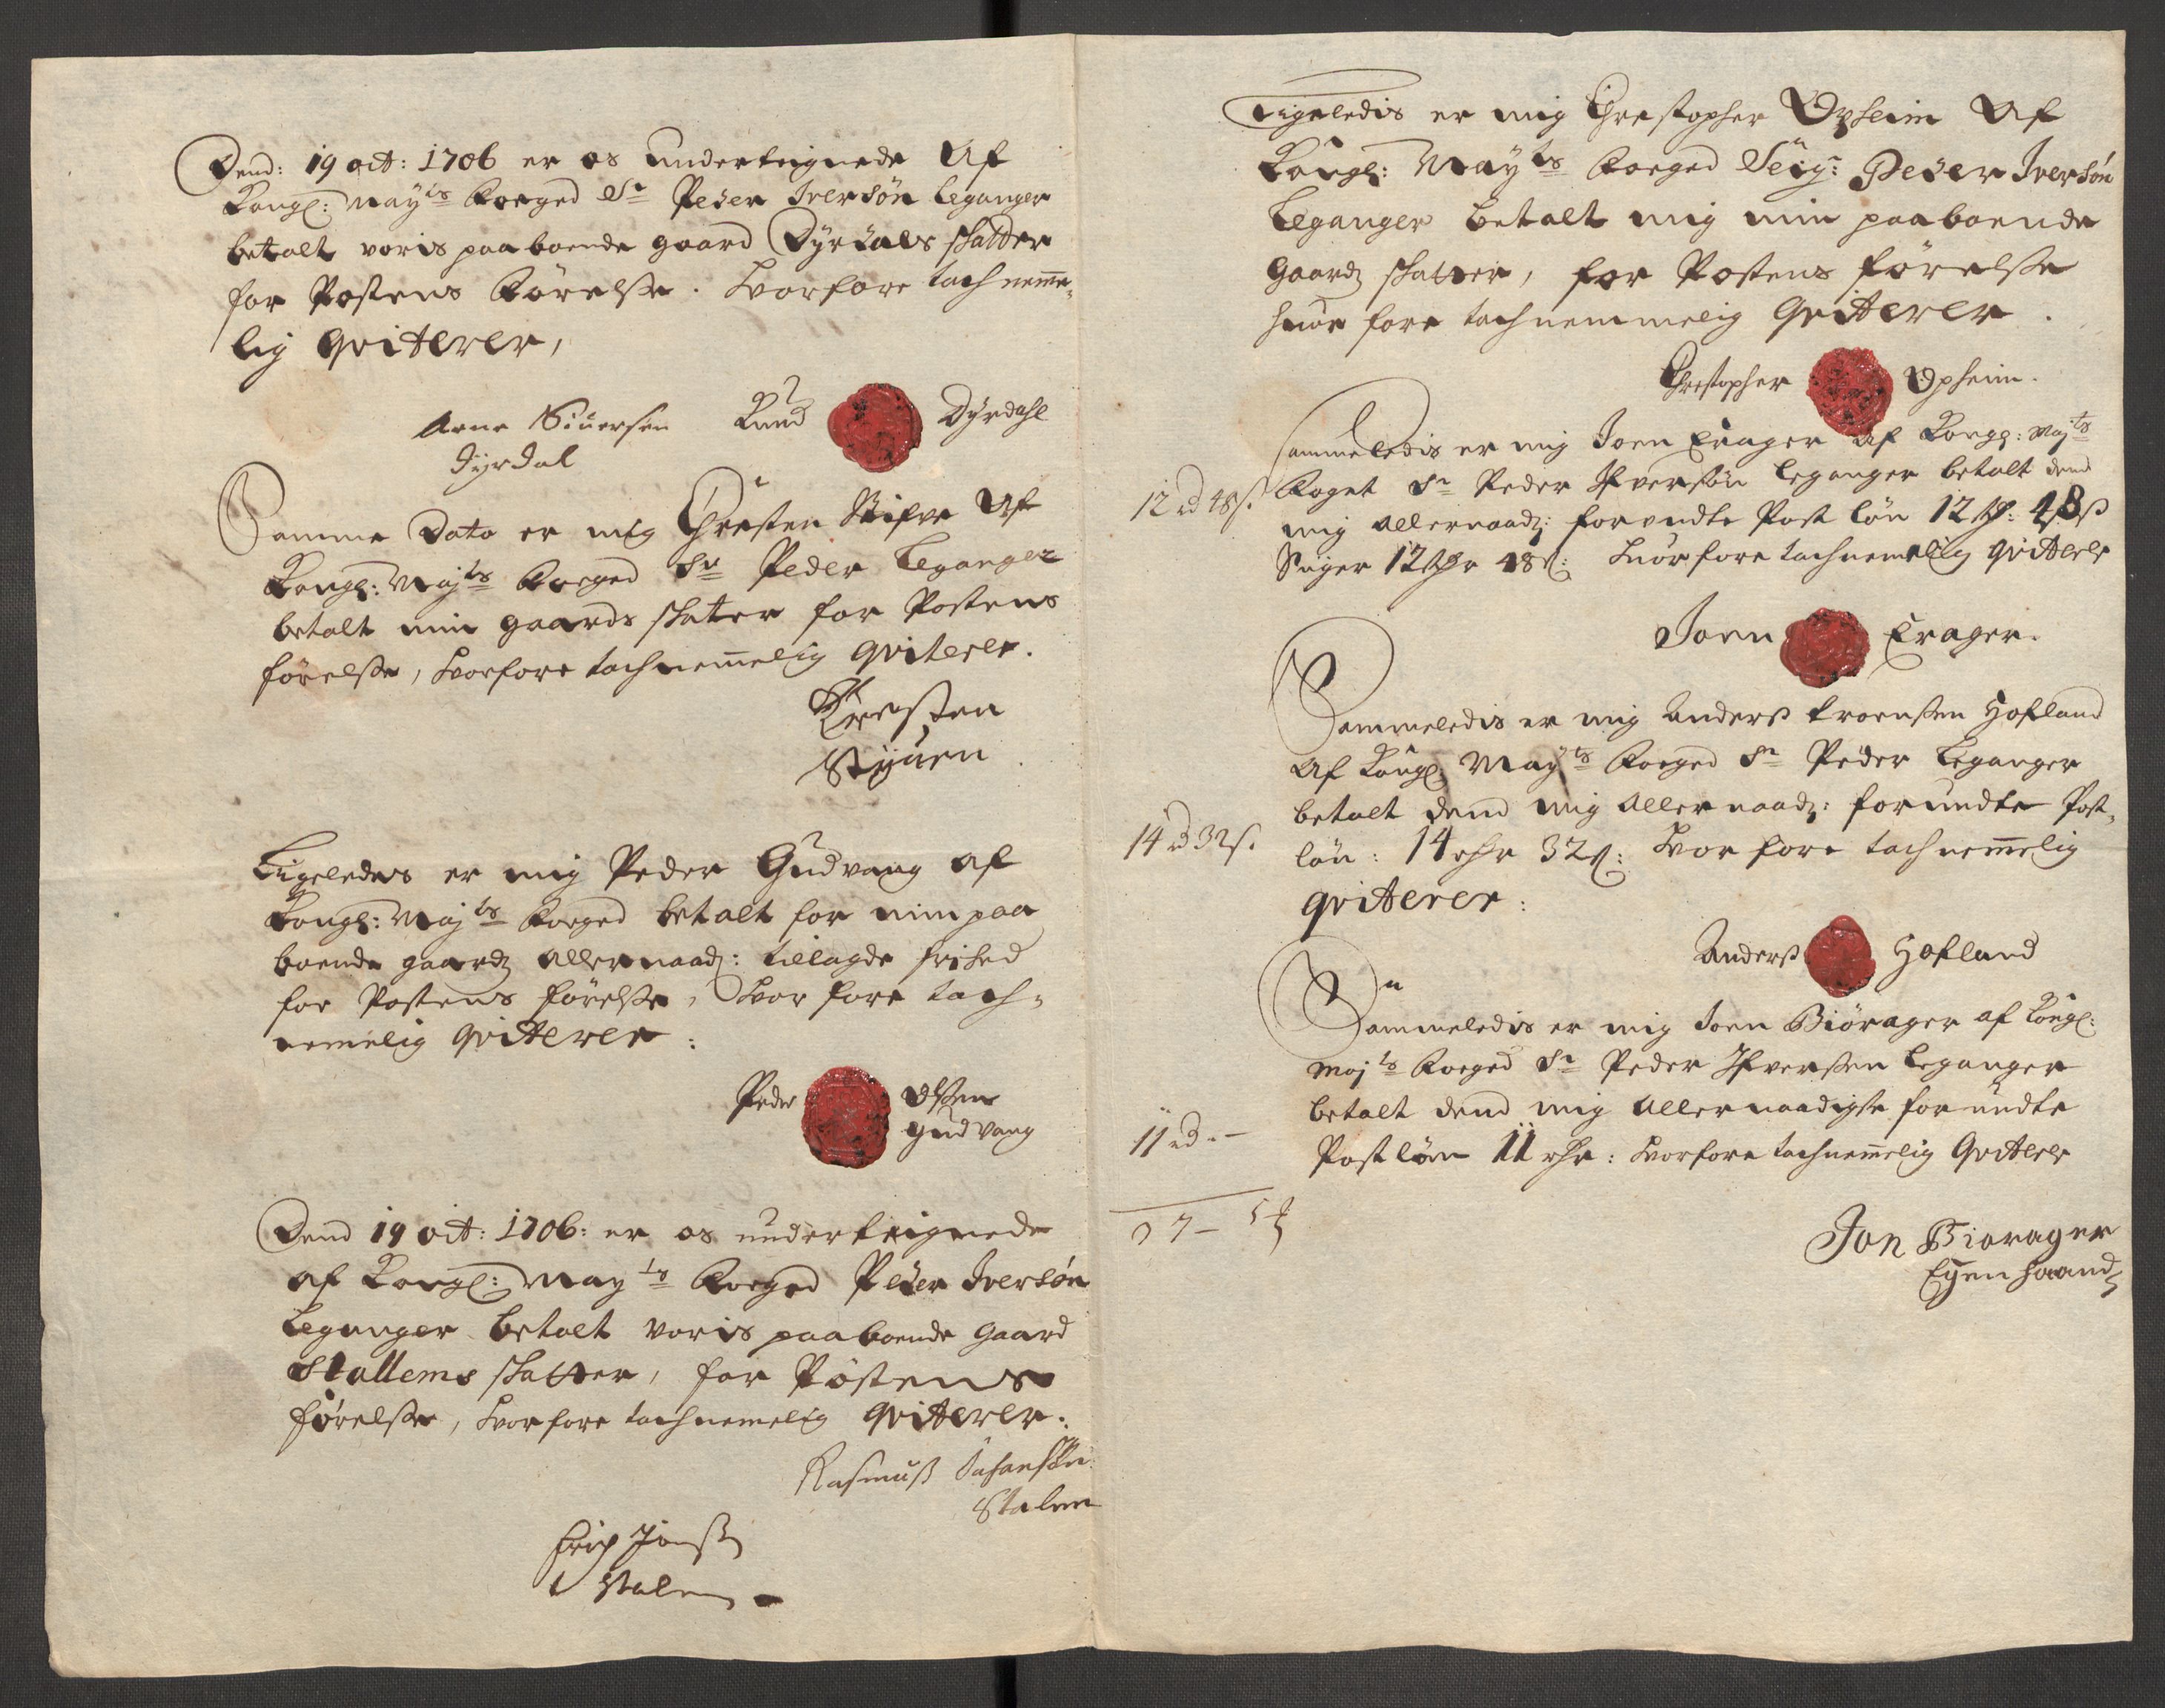 Dend: 19 oct: 1706 er os underteignede Af
Kongl: Mayts Foeged Sr Peder Iversøn Leganger
betalt voris paaboende gaard Dyrdals skatter
for Postens Førelsse. hvorfore tachnemme-
lig qvitterer,
Arne Siuersen Knud Dyrdahl
Dyrdal
Samme Dato er mig Chresten Stifve Af
Kongl: Majts Foeged Sr Peder Leganger
betalt min gaards skater for Postens
førelsse, hvorfore tachnemelig qviterer.
Kresten
Styuen
Ligeledes er mig Peder Gudvang af
Kongl: Majts Foeged betalt for min paa
boende gaards allernaad: tillagde frihed
for Postens førelsse, hvor fore tach-
nemelig qvitterer:
Peder Olssen
Gudvang
Dend 19 oct: 1706: er os underteignede
af Kongl: Mayts Foeged Peder Iversøn
Leganger betalt voris paaboende gaard
Stallems skatter, for Postens
førelsse, hvorfore tachnemelig qvitterer.
Rasmuss Johanssøn
Stalem
Erich Jonss
Stalem
Ligeledis er mig Chrestopher Opheim Af
Kongl: Mayts Foeged Seigr: Peder Iversøn
Leganger betalt mig min paaboende
Gaards skatter, for Postens førelsse
huor fore tachnemmelig qvitterer.
Chrestopher Opheim.
Sammeledis er mig Joen Crager Af Kongl: Majts
12 rd 48 s. Foget Sr Peder Ifversøn Leganger betalt dend
mig allernaads: forundte Post løn 12 rdr: 48 s
Siger 12 rdr 48 s: huorfore tachnemelig qvitterer
Joen Crager.
Sammeledis er mig Anderss Troenssen Hofland
Af Kongl: Mayts Foeged Sr Peder Leganger
betalt dend mig allernaads: forundte Post-
14 rd 32 s. løn: 14 rdr 32 s: hvor fore tachnemmelig
qvitterer:
Anderss Hofland
Sammeledis er mig Joen Biørager af Kongl:
Majts Foeged Sr Peder Ifverssen Leganger
betalt dend mig allernaadigste forundte
11 rd - - Postløn 11 rdr: hvorfore tachnemmelig qvitterer
Jon Biorager
Egen haand